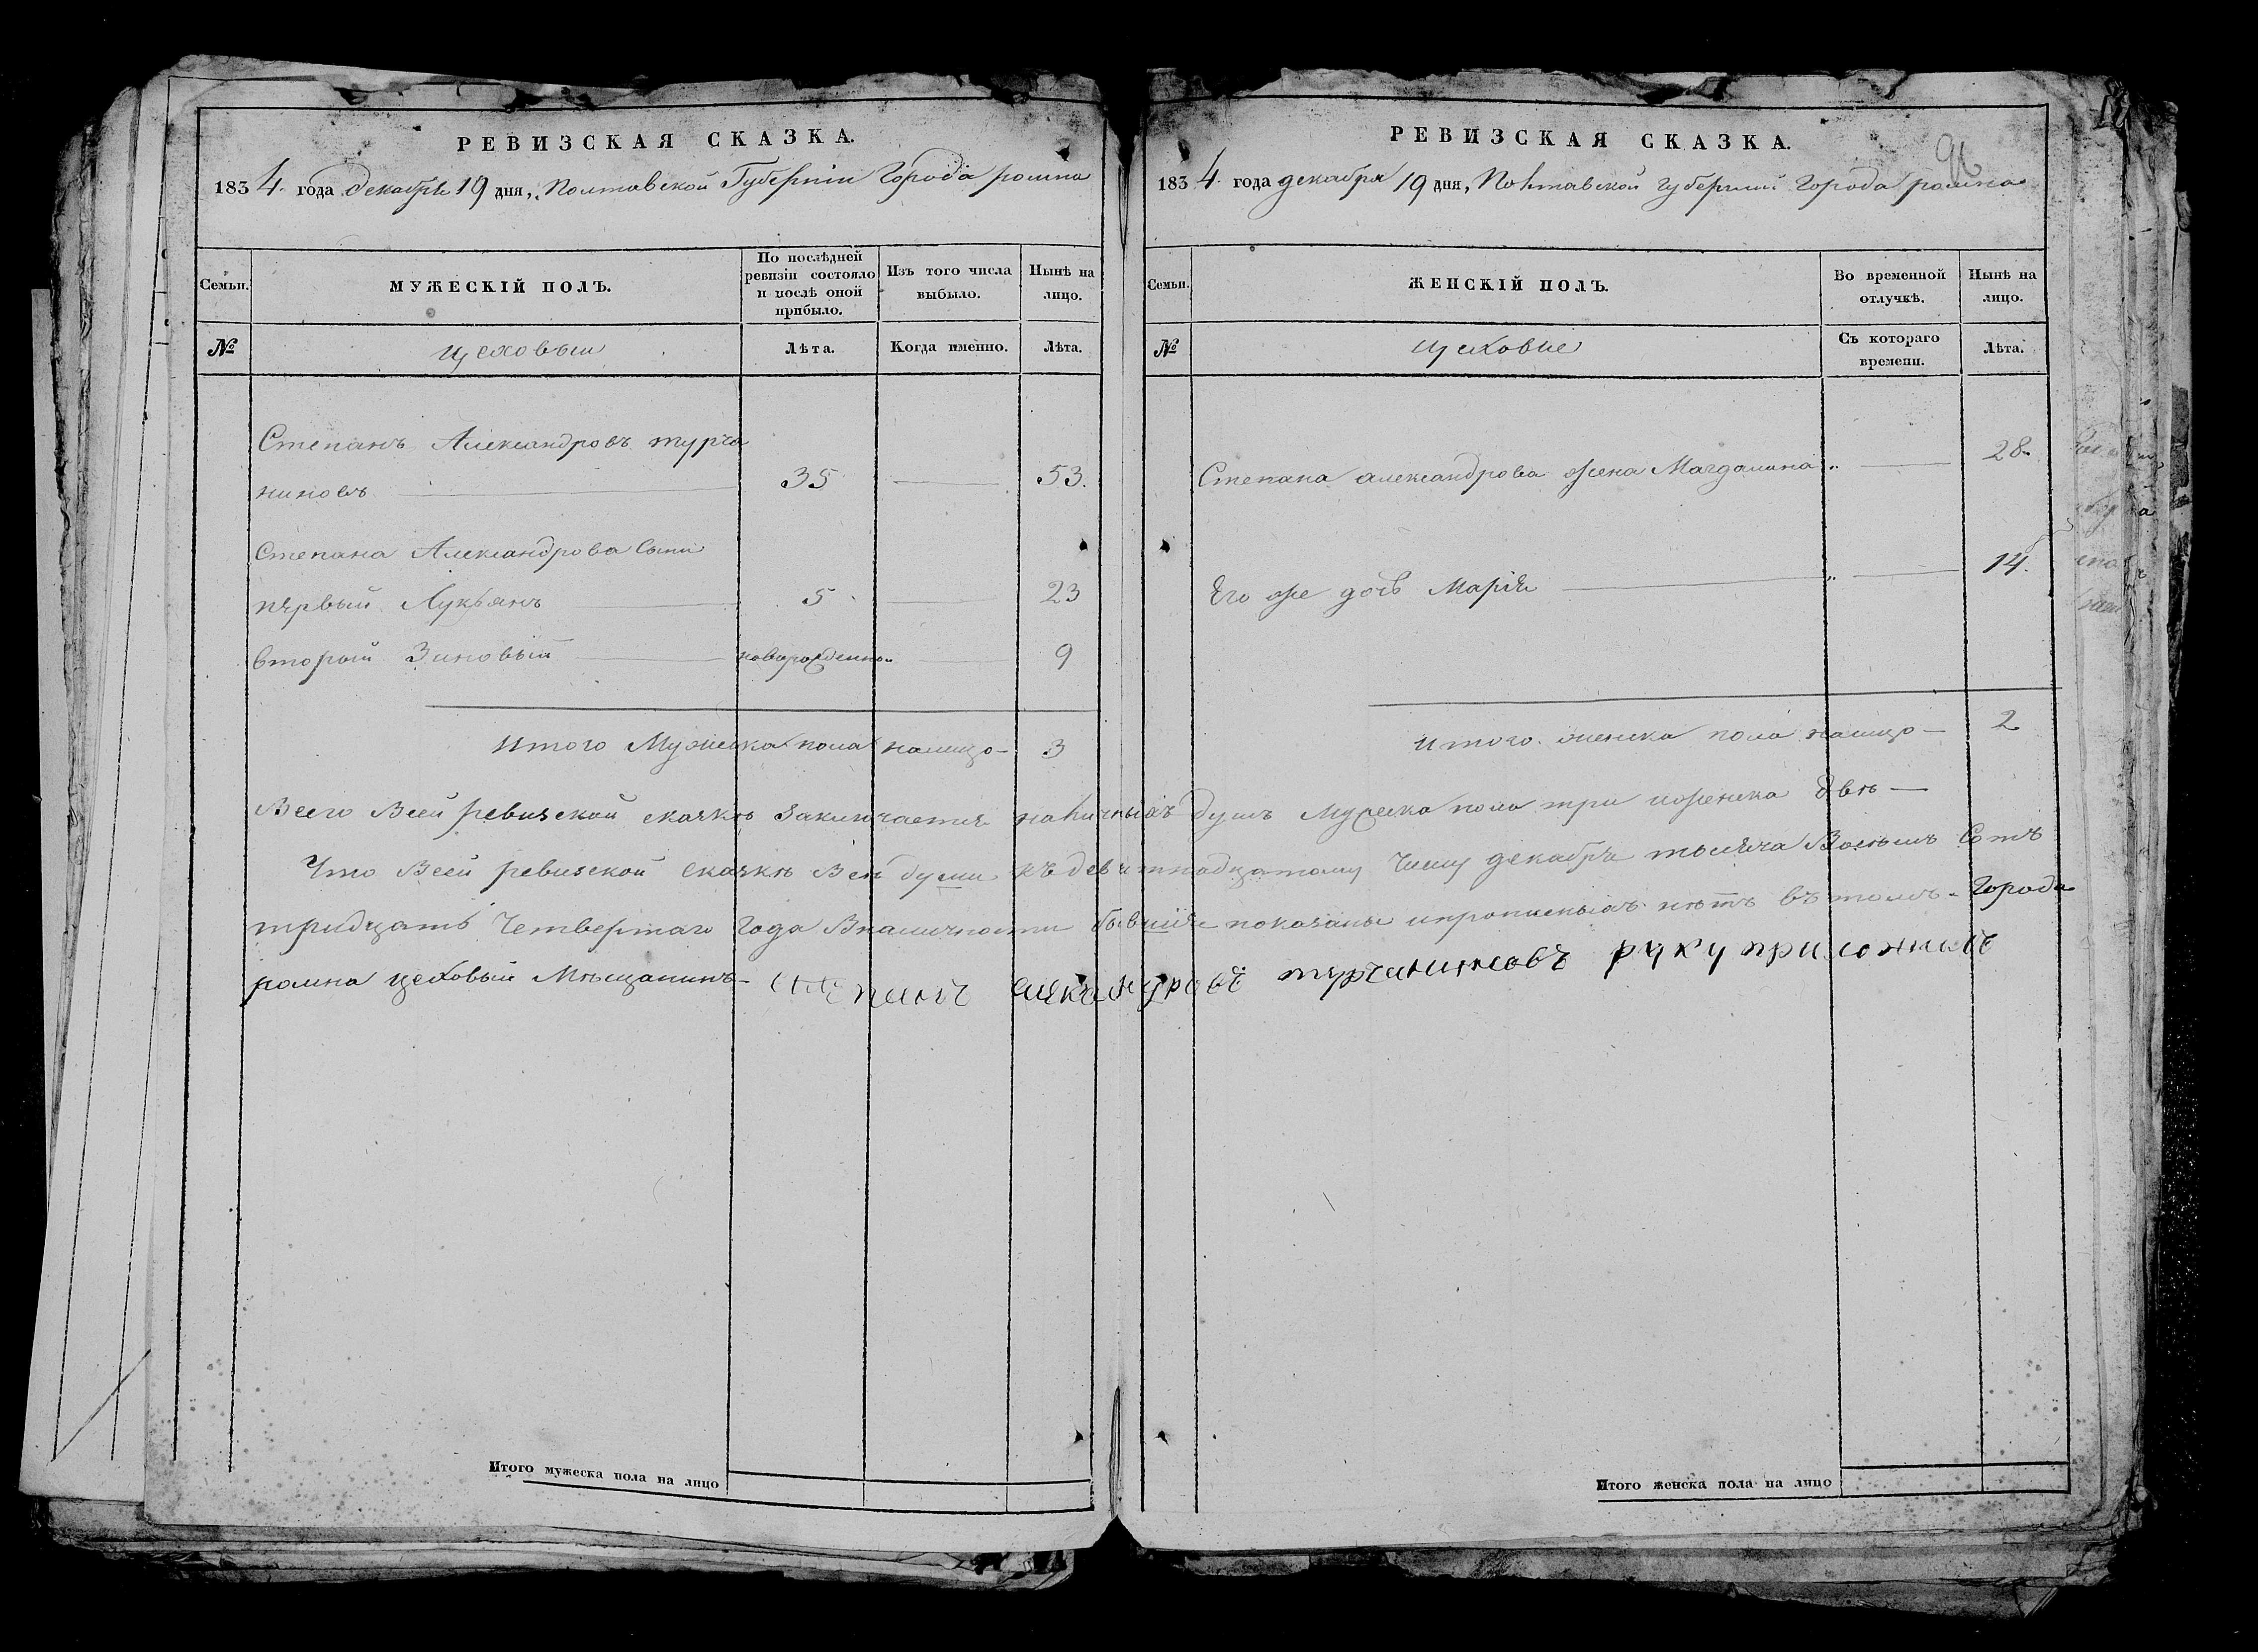 РЕВИЗСКАЯ СКАЗКА.
1834 года декабря 19 дня, Полтавской Губерніи Города ромна
Семьи.
МУЖЕСКІЙ ПОЛЪ.
По послѣдней ревизіи состояло и послѣ оной прибыло.
Изъ того числа выбыло.
Нынѣ на лицо.
№
цеховыи
Лѣта.
Когда именно.
Лѣта.
Степанъ Александровъ турча
ниновъ 35 53.
Степана Александрова сыны
первый Лукьянъ 5 23
вторый Зиновый новорожденно 9
итого Мужеска пола налицо 3
РЕВИЗСКАЯ СКАЗКА.
96
1834 года декабря 19 дня, Полтавской губернии города ромна
Семьи.
ЖЕНСКІЙ ПОЛЪ.
Во временной отлучкѣ.
Нынѣ на лицо.
№
цеховые
Съ котораго времени.
Лѣта.
Степана александрова жена Магдалина 28
Его же дочь Марія 14.
итого женска пола налицо 2
Всего Всей ревизской сказкѣ Заключается наличныхъ душъ Мужеска пола три иженска двѣ
Что Всей ревизской сказкѣ Всѣ души къ девятнадцатому Числу декабря тысяча Восемъ Сотъ
тридцать Четвертаго года Вналичности бывшіе показаны ипрописныхъ нѣтъ въ томъ Города
ромна цеховый Мѣщанинъ степанъ александровъ турчаниновъ руку приложилъ
Итого мужеска пола на лицо
Итого женска пола на лицо